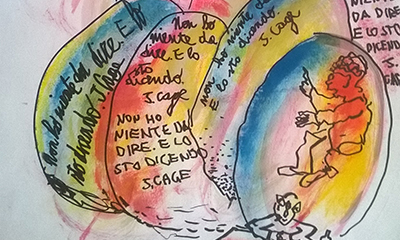 Non ho niente da dire. E lo
sto dicendo. J. Cage
Non ho
niente da
dire. E lo
sto
dicendo.
J. Cage
NON HO
NIENTE DA
DIRE. E LO
STO DICENDO
J. CAGE
non ho niente da dire
E lo sto dicendo.
J. Cage
NIENTE
DA DIRE
E LO STO
DICENDO
J.
CAGE